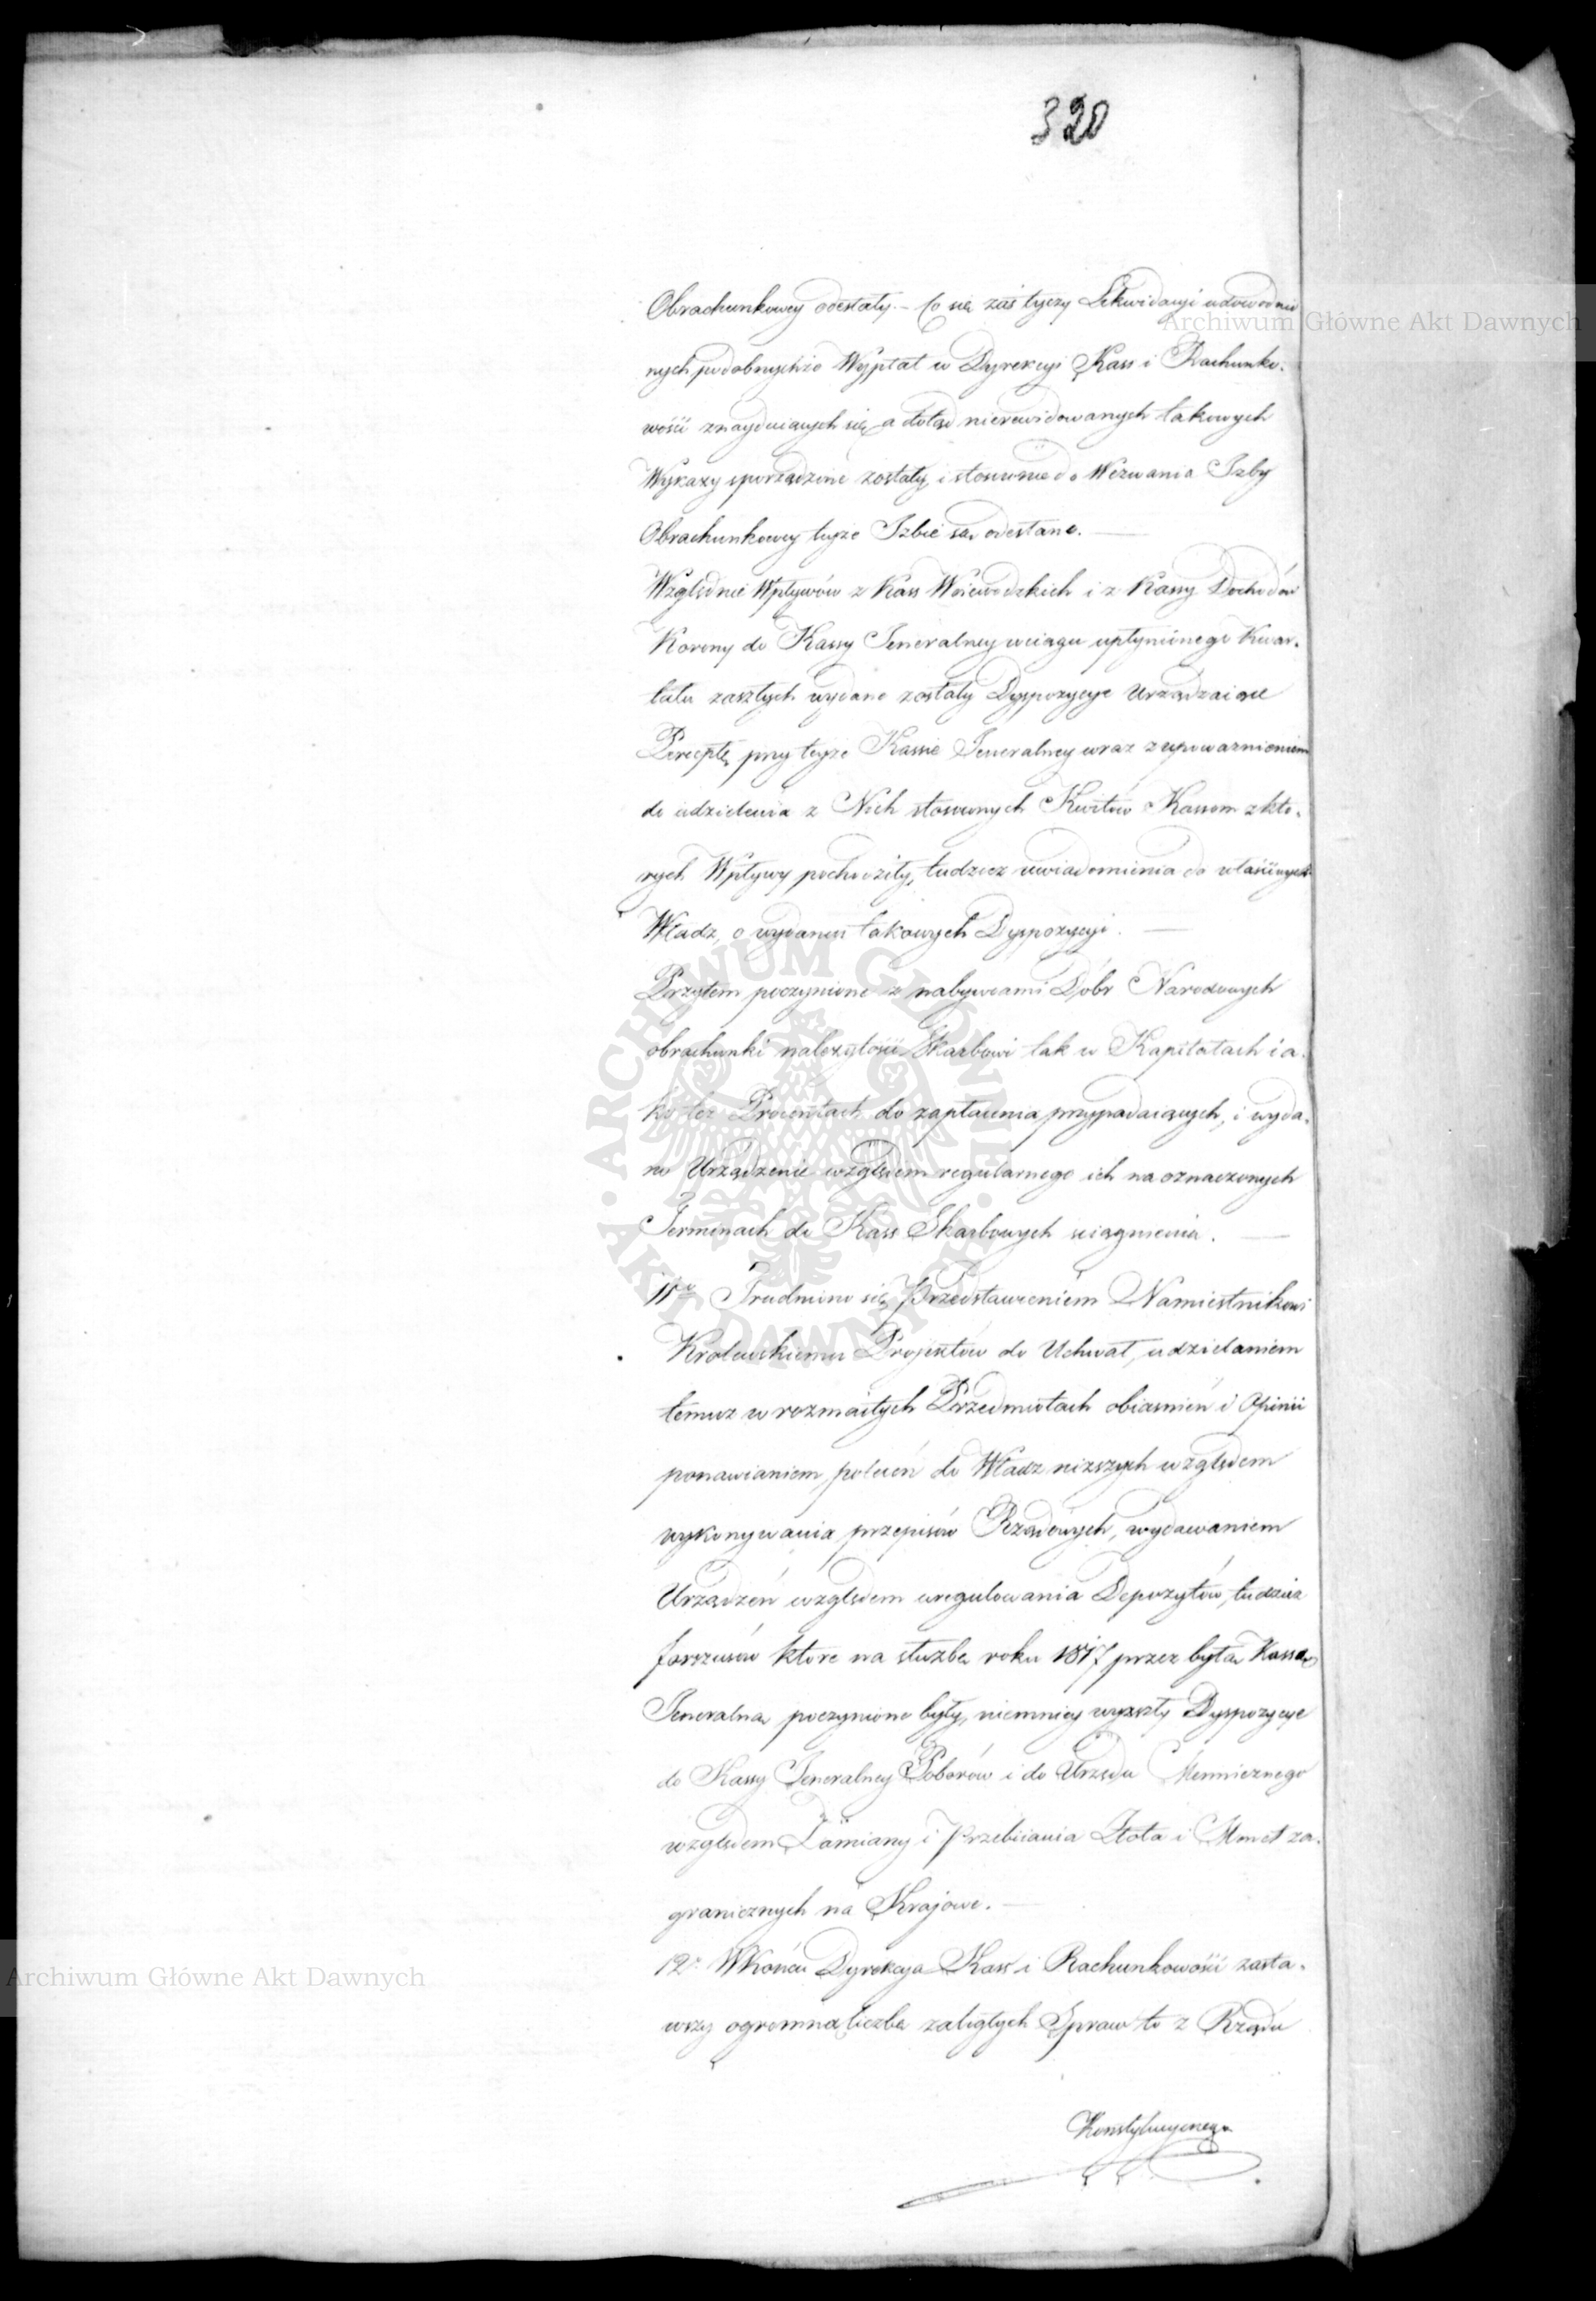 320
Obrachunkowey odesłały. – Co się zaś tyczy Likwidacyi udowodnio
nych podobnychże Wypłat w Dyrekcyi Kass i Rachunko-
wości znayduiących się a dotąd nierewidowanych takowych
Wykazy sporządzone zostały i stosownie do Wezwania Izby
Obrachunkowey teyże Izbie są odesłane. —
Względnie Wpływów z Kass Woiewodzkich i z Kassy Dochodów
Korony do Kassy Jeneralney wciągu upłynionego Kwar-
tału zaszłych wydane zostały Dyspozycye Urządzaiące
Perceptę przy teyże Kassie Jeneralney wraz z upoważnieniem
do udzielenia z Nich stosownych Kwitów Kassom z któ-
rych Wpływy pochodziły, tudzież uwiadomienia do właściwych
Władz, o wydaniu takowych Dyspozycyi. —
Przytem poczynione z nabywcami Dóbr Narodowych
obrachunki należytości Skarbowi tak w Kapitałach ia-
ko też Procentach do zapłacenia przypadaiących, i wyda-
no Urządzenie względem regularnego ich na oznaczonych
Terminach do Kass Skarbowych ściągnienia. —
11o Trudniono się Przedstawieniem Namiestnikowi
Krolewskiemu Projektów do Uchwał, udzielaniem
temuż w rozmaitych Przedmiotach obiaśnień i Opinii
ponawianiem poleceń do Władz niższych względem
wykonywania przepisów Rządowych, wydawaniem
Urządzeń względem uregulowania Depozytów, tudzież
forszusów które na służbę roku 1817 przez byłą Kassę
Jeneralną poczynione były, niemniey wyszły Dyspozycye
do Kassy Jeneralney Poborów i do Urzędu Mennicznego
względem Zamiany i Przebiiania Złota i Monet za-
granicznych na Krajowe. —
12o Wkońcu Dyrekcya Kass i Rachunkowości zasta-
wszy ogromną liczbę zaległych Spraw to z Rządu
Konstytucyinego
Archiwum Główne Akt Dawnych
ARCHIWUM GŁÓWNE AKT DAWNYCH
Archiwum Główne Akt Dawnych